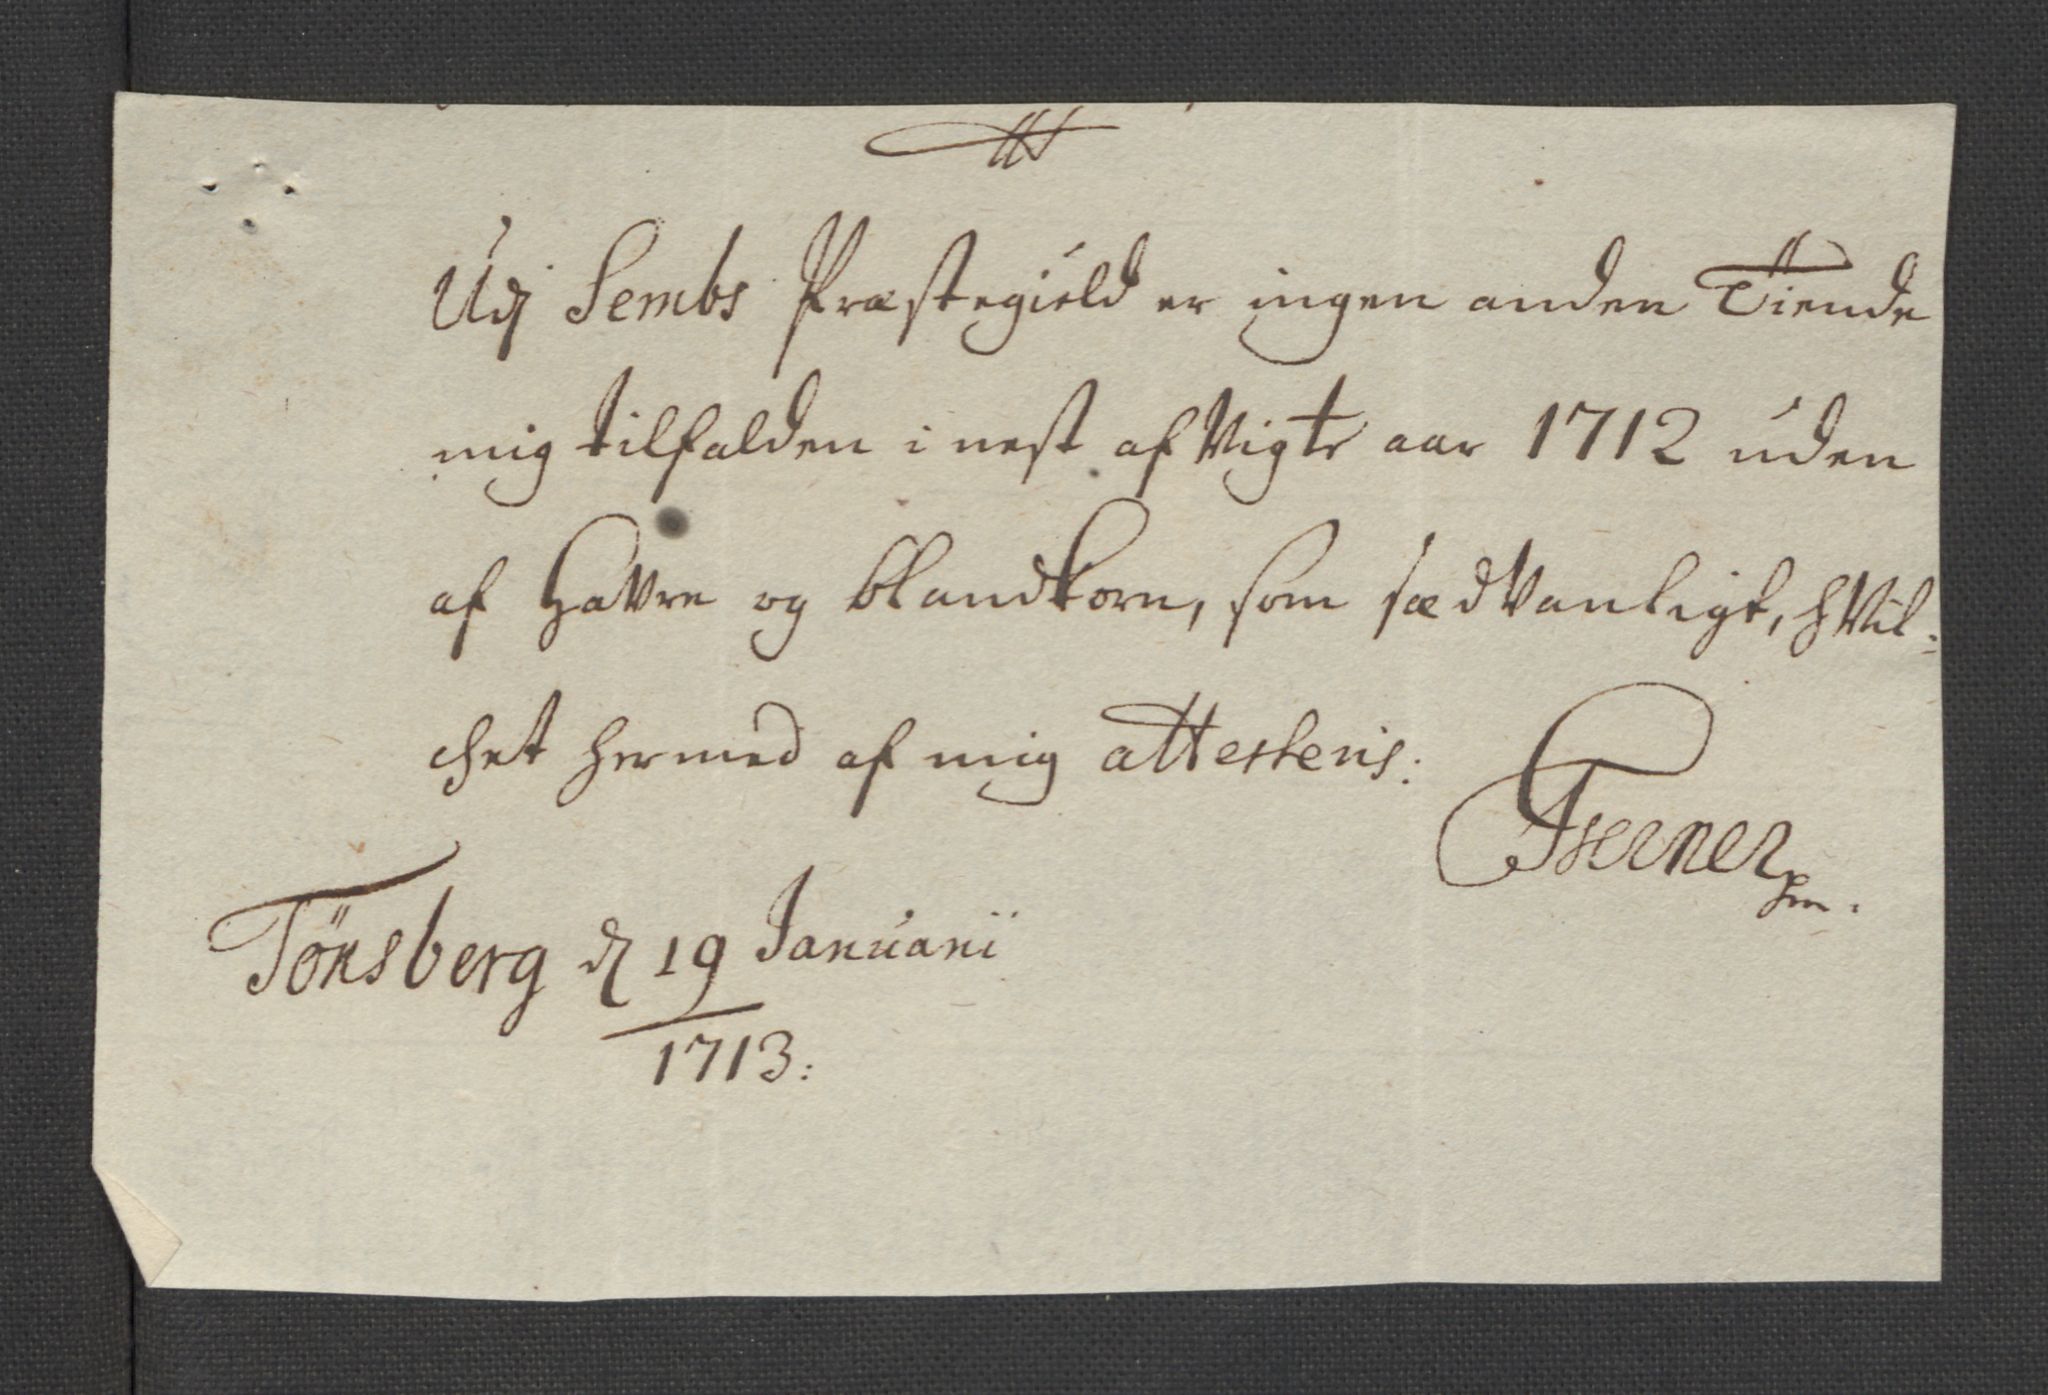 Udj Sembs Præstegield er ingen anden Tiende
mig tilfalden i nest afvigte aar 1712 uden
af Havre og blandkorn, som sædvanligt, hvil:
chet hermed af mig attesteris:
Tönsberg d 19 Januarii
1713: